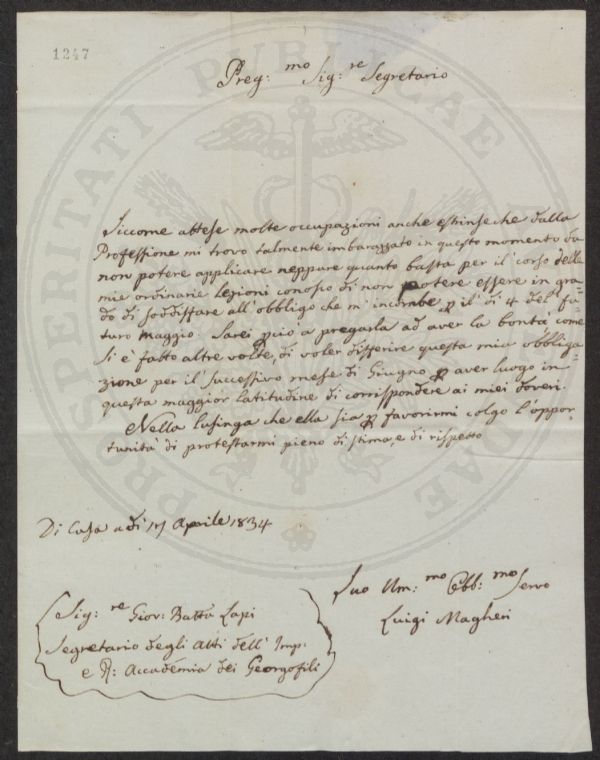 1247
Preg:mo Sig:re Segretario
Siccome attese molte occupazioni anche estrinseche dalla
Professione mi trovo talmente imbarazzato in questo momento da
non potere applicare neppure quanto basta per il corso delle
mie ordinarie lezioni conosco di non potere essere in gra=
do di soddisfare all'obbligo che m'incombe p il di 4 del fu=
turo Maggio. Sarei pciò a pregarla ad aver la bontà, come
si è fatto altre volte, di voler differire questa mia obbliga=
zione per il successivo mese di Giugno p aver luogo in
questa maggior latitudine di corrispondere ai miei doveri.
Nella lusinga che ella sia p favorirmi colgo l'oppor=
tunità di protestarmi pieno di stima, e di rispetto
Di Casa a di 17 Aprile 1834
Suo Um:mo Obb:mo Servo
Luigi Magheri
Sig:re Giov: Batta Lapi
Segretario degli Atti dell' Imp:
e R: Accademia dei Georgofili
PROSPERITATI PUBLICAE AUGENDAE